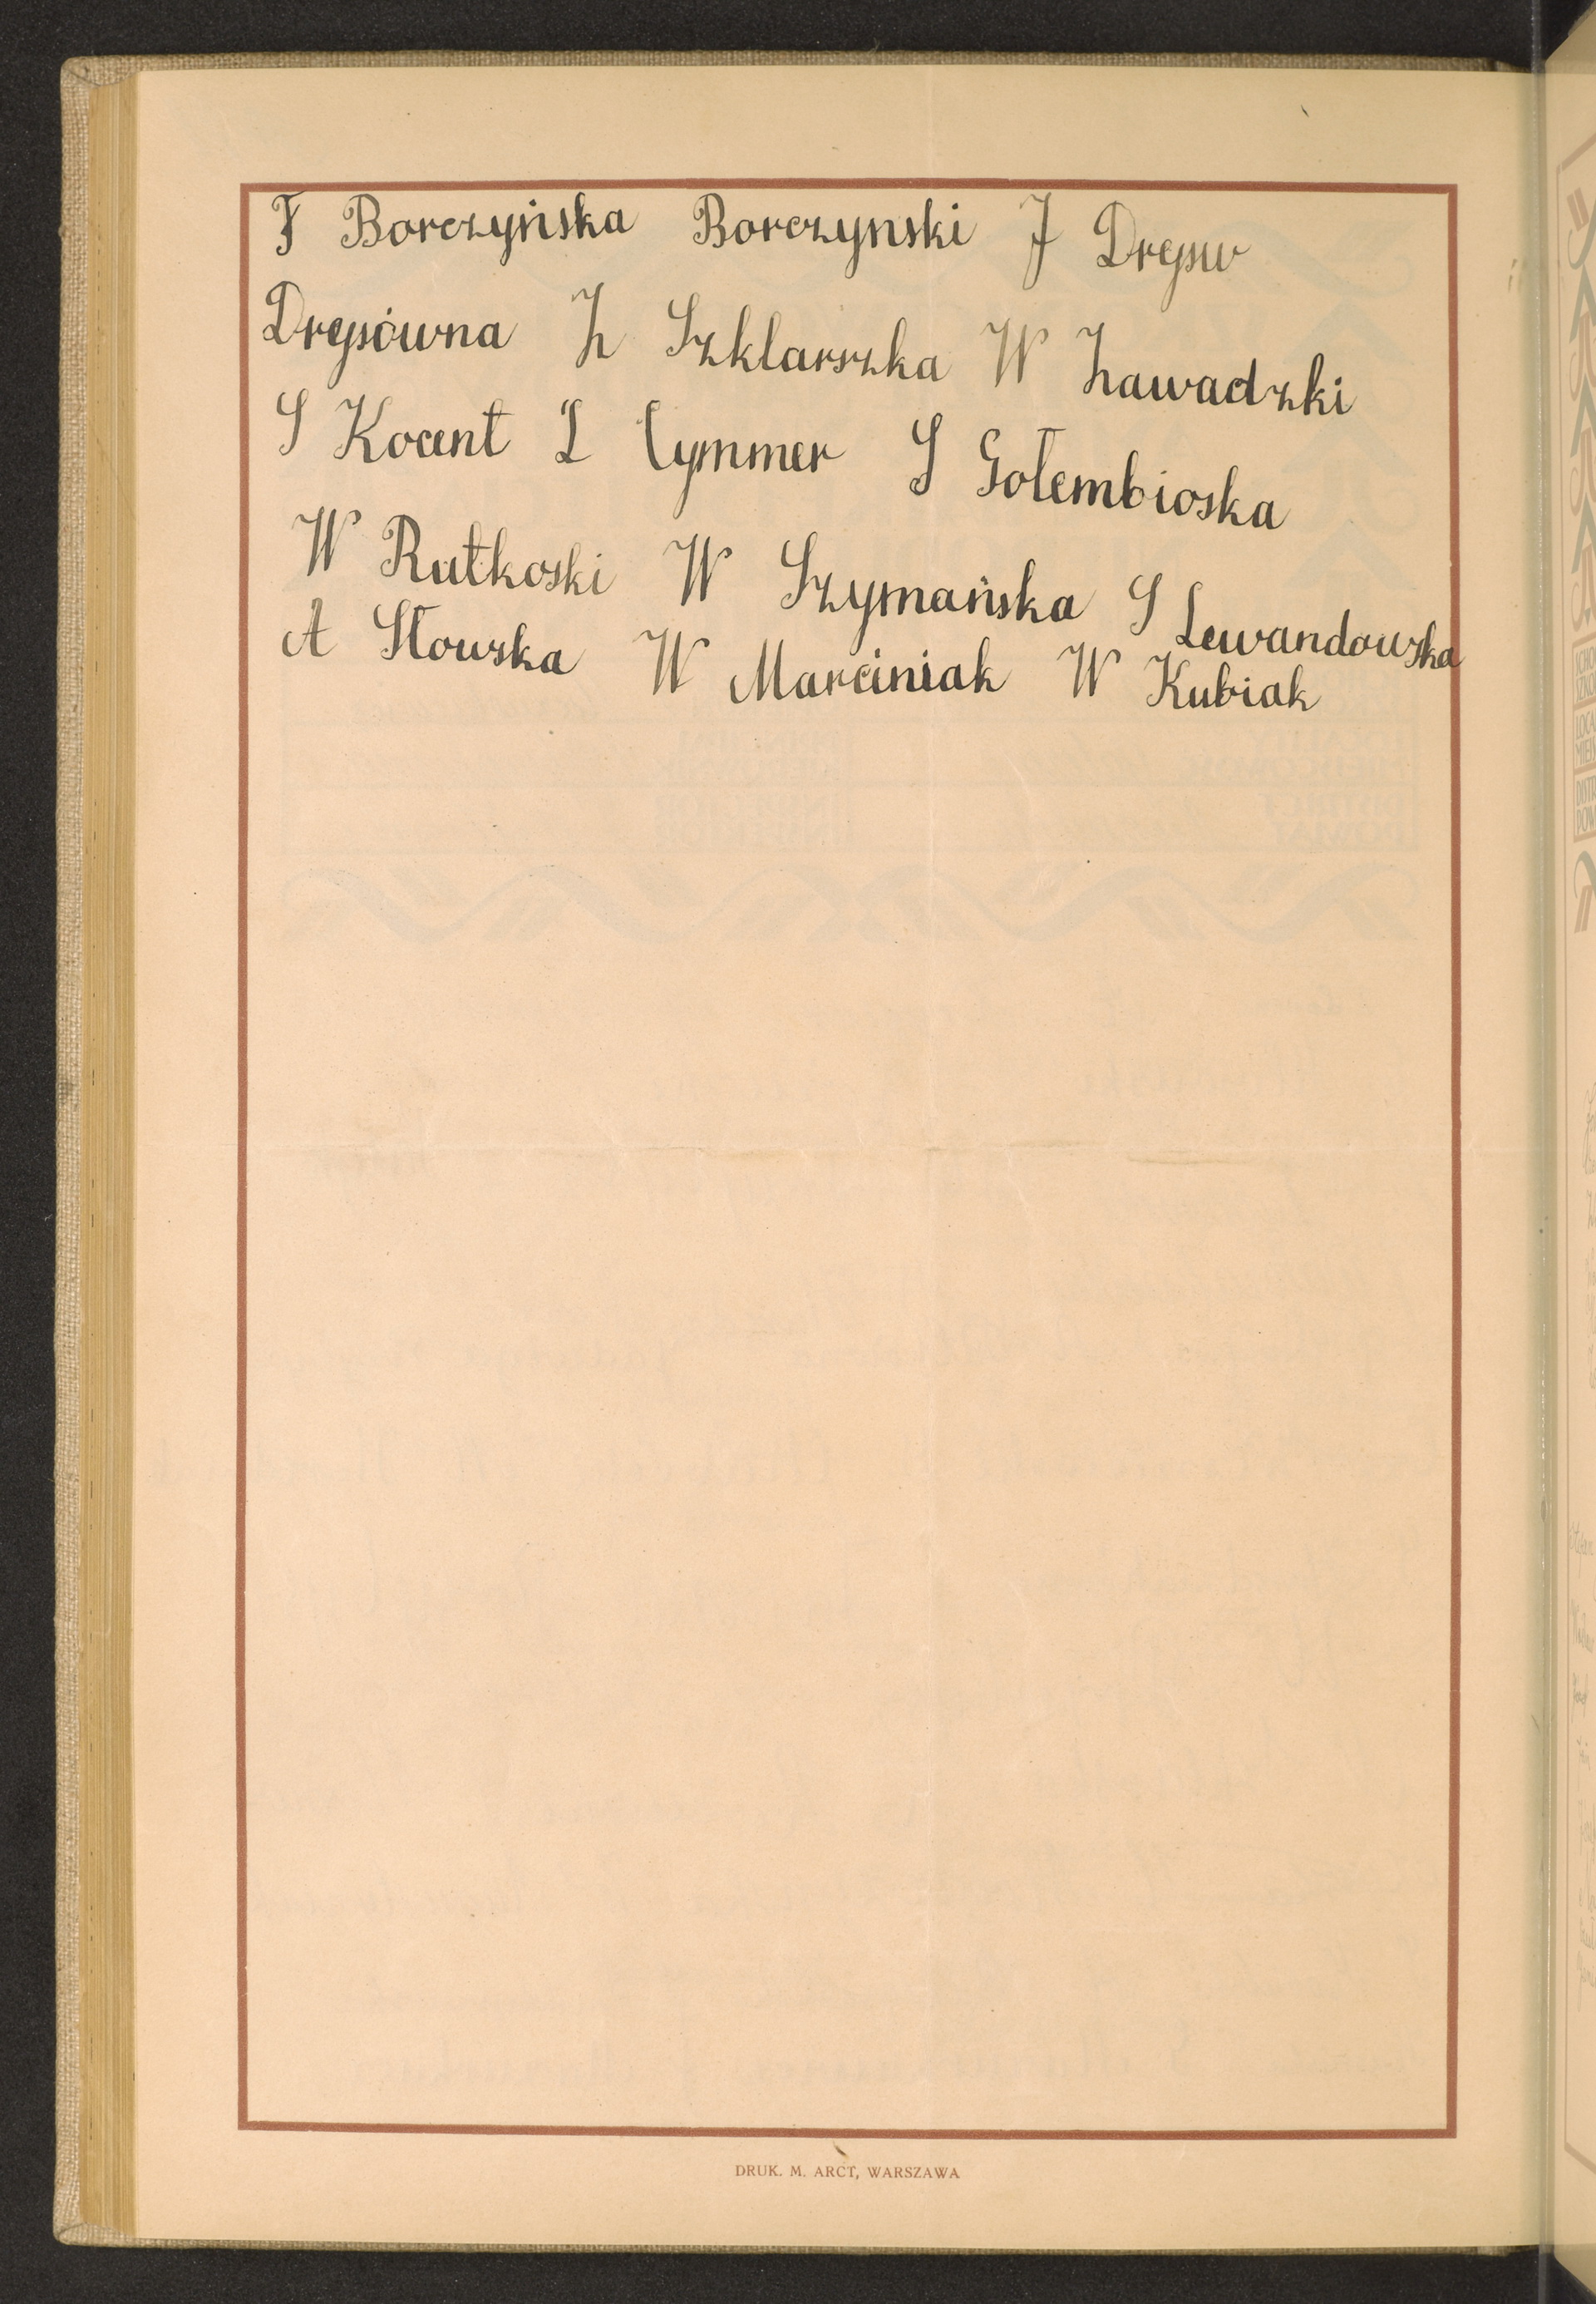 F Borczyńska Borczynski J Dreysw
Dreysówna Z Szklarszka W Zawadzki
S Kocent L Cymmer S Gołembioska
W Rutkoski W Szymańska S Lewandowska
A Stowska W Marciniak W Kubiak
DRUK. M. ARCT, WARSZAWA